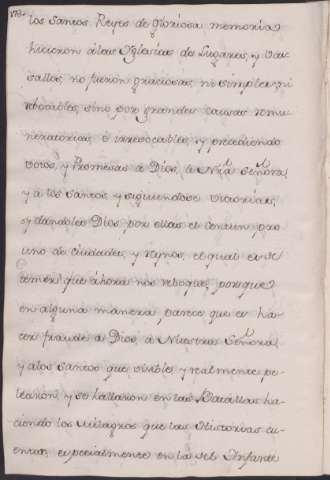 los Santos Reyes de gloriosa memoria
hicieron á las Yglesias de Lugares, y Va-
sallos, no fueron graciosas, ni simples, ni
rebocables, sino por grandes causas remu-
neratorias, é irrevocables, y precediendo
votos, y Promesas á Dios, á Nrâ. Señora,
y á los Santos, y siguiendose victorias,
y dandoles Dios, por ellas el comun pro
uno de ciudades, y reynos, el qual es de
temer que áhora nos reboque, porque
en alguna manera parece que es ha-
cer fraude á Dios, á Nuestra Señora,
y alos Santos que visible, y realmente pe-
learon, y se hallaron en las Batallas ha-
ciendo los milagros que las Historias cu-
entan, especialmente en la del Infante